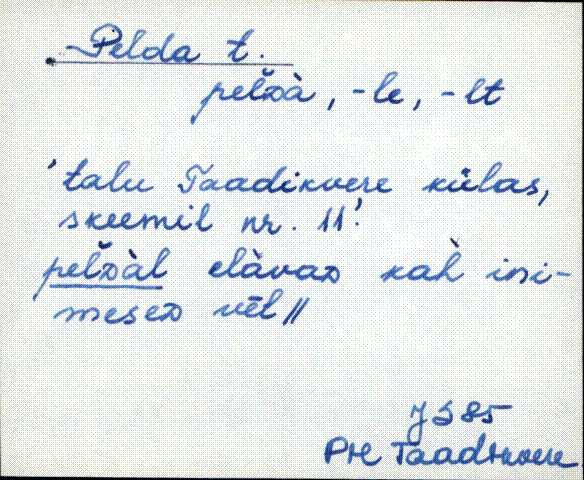 Pelda t.
pel̆ᴅà, -le, -lt
'talu Taadikvere külas,
skeemil nr. 11'.
pel̆ᴅàl elàvaᴅ kah̀ ini-
meseᴅ vēl //
JS 85
Plt Taadikvere